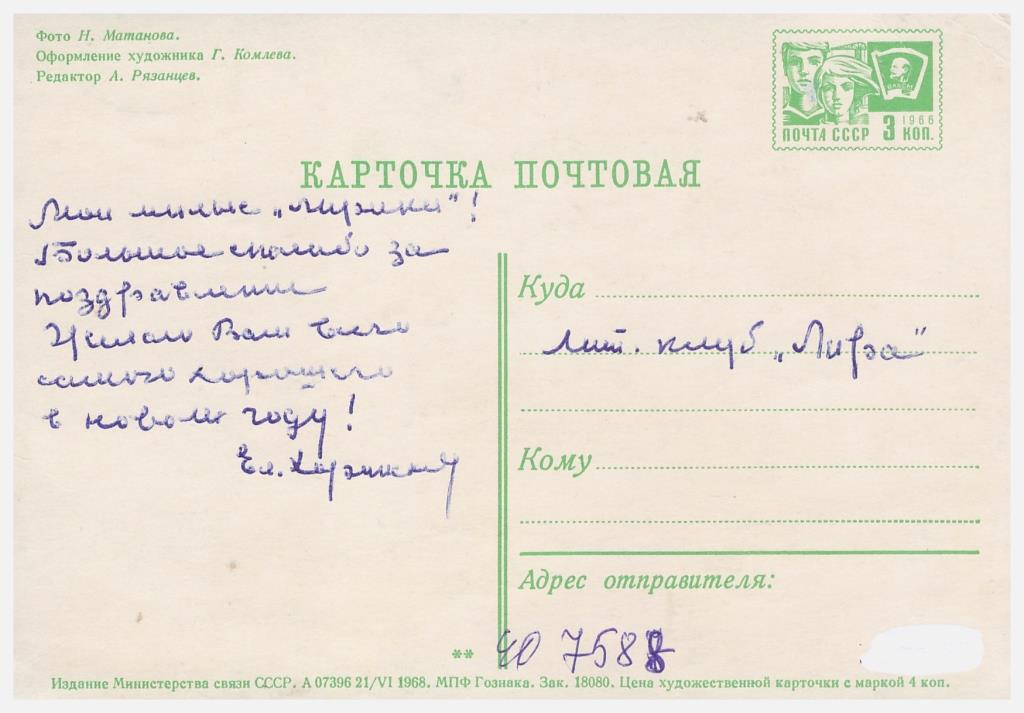 Фото Н. Матанова.
Оформление художника Г. Комлева.
Редактор А. Рязанцев.
ВЛКСМ
1966
ПОЧТА СССР 3 КОП.
КАРТОЧКА ПОЧТОВАЯ
Мои милые „Лирики"!
Большое спасибо за
поздравление
Желаю Вам всего
самого хорошего
в новом году!
Ел.
Куда
Лит. клуб „Лира"
Кому
Адрес отправителя:
** 40 7588
Издание Министерства связи СССР. А 07396 21/VI 1968. МПФ Гознака. Зак. 18080. Цена художественной карточки с маркой 4 коп.